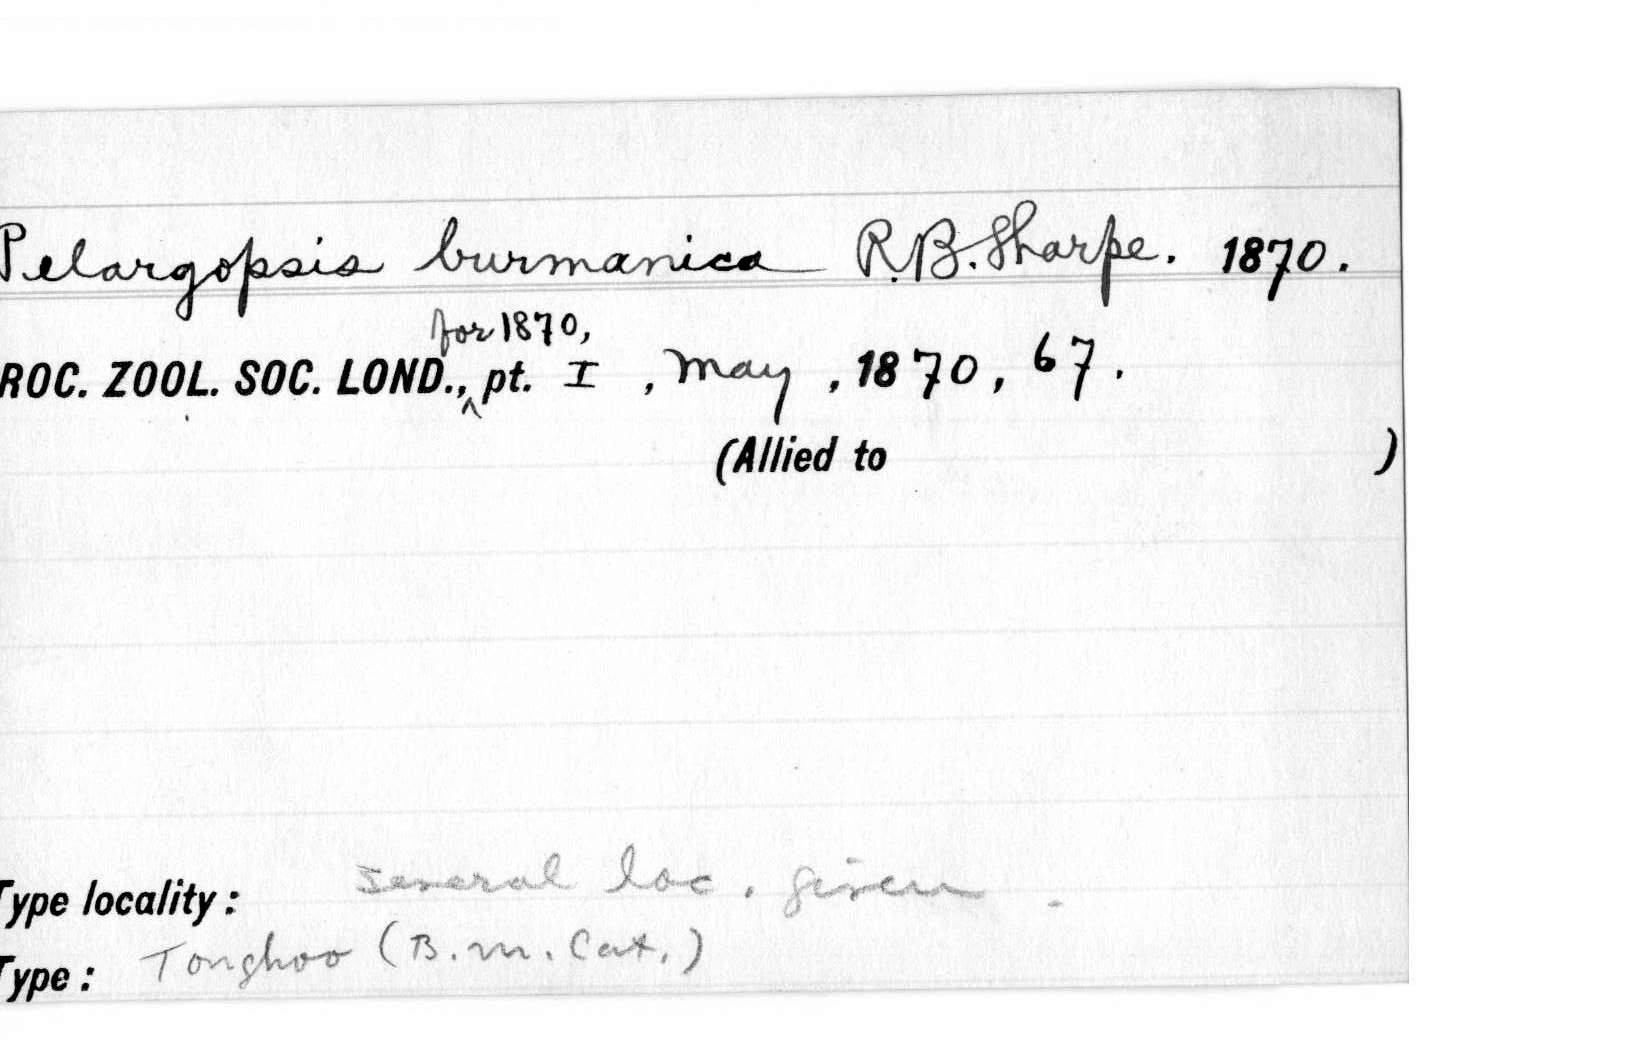 Pelargopsis burmanica R.B. Sharpe. 1870.
for 1870,
ROC. ZOOL. SOC. LOND., pt. I , May , 1870, 67.
(Allied to )
Type locality: several loc. given.
Type: Tonghoo (B.M. Cat.)